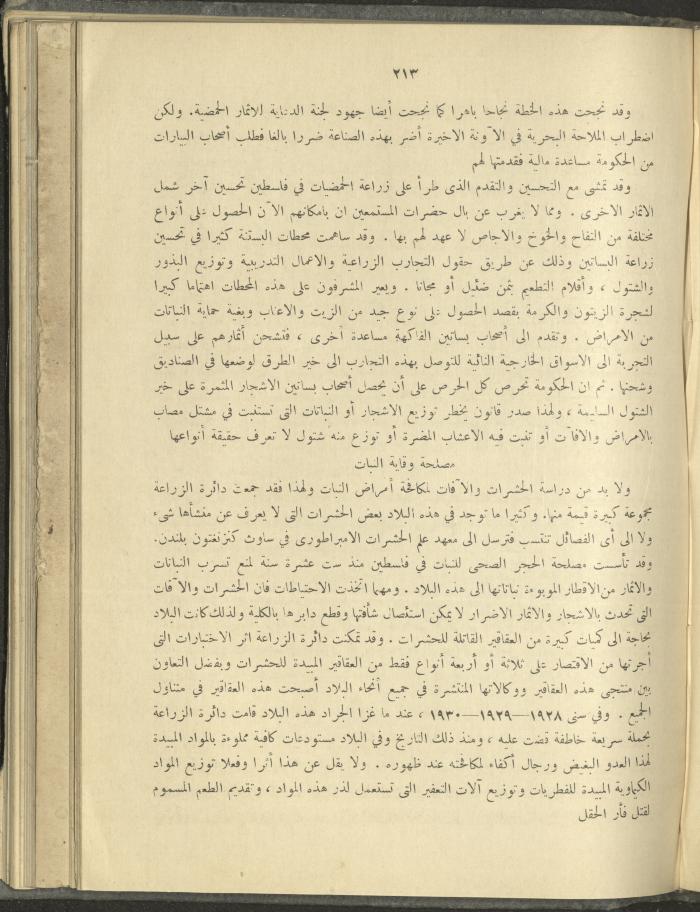 ٢١٣
وقد نجحت هذه الخطة نجاحا باهرا كما نجحت أيضا جهود لجنة الدعاية للاثمار الحمضية. ولكن
اضطراب الملاحة البحرية في الآونة الاخيرة أضر بهذه الصناعة ضررا بالغا فطلب أصحاب البيارات
من الحكومة مساعدة مالية فقدمتها لهم
وقد تمشى مع التحسين والتقدم الذى طرأ على زراعة الحمضيات في فلسطين تحسين آخر شمل
الاثمار الاخرى . ومما لا يغرب عن بال حضرات المستمعين ان بامكانهم الآن الحصول على أنواع
مختلفة من التفاح والخوخ والاجاص لا عهد لهم بها . وقد ساهمت محطات البستنة كثيرا في تحسين
زراعة البساتين وذلك عن طريق حقول التجارب الزراعية والاعمال التدريبية وتوزيع البذور
والشتول ، وأقلام التطعيم بثمن ضئيل أو مجانا . ويعير المشرفون على هذه المحطات اهتماما كبيرا
لشجرة الزيتون والكرمة بقصد الحصول على نوع جيد من الزيت والاعناب وبغية حماية النباتات
من الامراض . وتقدم الى أصحاب بساتين الفاكهة مساعدة أخرى ، فتشحن أثمارهم على سبيل
التجربة الى الاسواق الخارجية النائية للتوصل بهذه التجارب الى خير الطرق لوضعها في الصناديق
وشحنها . ثم ان الحكومة تحرص كل الحرص على أن يحصل أصحاب بساتين الاشجار المثمرة على خير
الشتول السليمة ، ولهذا صدر قانون يخطر توزيع الاشجار أو النباتات التى تستنبت في مشتل مصاب
بالامراض والافآت أو تنبت فيه الاعشاب المضرة أو توزع منه شتول لا تعرف حقيقة أنواعها
مصلحة وقاية النبات
ولا بد من دراسة الحشرات والآفات لمكافحة أمراض النبات ولهذا فقد جمعت دائرة الزراعة
مجموعة كبيرة قيمة منها. وكثيرا ما توجد في هذه البلاد بعض الحشرات التى لا يعرف عن منشأها شىء
ولا الى أى الفصائل تنتسب فترسل الى معهد علم الحشرات الامبراطورى في ساوث كنزنغتون بلندن.
وقد تأسست مصلحة الحجر الصحى للنبات في فلسطين منذ ست عشرة سنة لمنع تسرب النباتات
والاثمار من الاقطار الموبوءة نباتاتها الى هذه البلاد . ومهما اتخذت الاحتياطات فان الحشرات والآفات
التى تحدث بالاشجار والاثمار الاضرار لا يمكن استئصال شأفتها وقطع دابرها بالكلية ولذلك كانت البلاد
بحاجة الى كميات كبيرة من العقاقير القاتلة للحشرات . وقد تمكنت دائرة الزراعة اثر الاختبارات التى
أجرتها من الاقتصار على ثلاثة أو أربعة أنواع فقط من العقاقير المبيدة للحشرات وبفضل التعاون
بين منتجى هذه العقاقير ووكالاتها المنتشرة في جميع أنحاء البلاد أصبحت هذه العقاقير في متناول
الجميع . وفي سنى ١٩٢٨—١٩٢٩—١٩٣٠ ، عند ما غزا الجراد هذه البلاد قامت دائرة الزراعة
بحملة سريعة خاطفة قضت عليه ، ومنذ ذلك التاريخ وفي البلاد مستودعات كافية مملوءة بالمواد المبيدة
لهذا العدو البغيض ورجال أكفاء لمكافحته عند ظهوره . ولا يقل عن هذا أثرا وفعلا توزيع المواد
الكيماوية المبيدة للفطريات وتوزيع آلات التعفير التى تستعمل لذر هذه المواد ، وتقديم الطعم المسموم
لقتل فأر الحقل